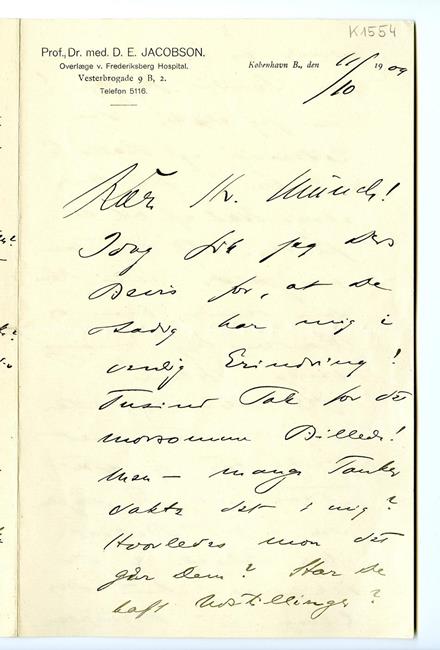 K1554
Prof., Dr. med. D. E. JACOBSON.
Overlæge v. Frederiksberg Hospital.
Vesterbrogade 9 B, 2.
Telefon 5116.
København B., den 11/10 1909
Kær Hr. Münch!
Idag fik jeg Deres
Bevis for, at De
stadig har mig i
venlig Erindring!
Tusind Tak for det
morsomme Billede!
Men — mange Tanker
vakte det i mig?
Hvorledes mon det
går Dem? Har De
haft Udstillinger?